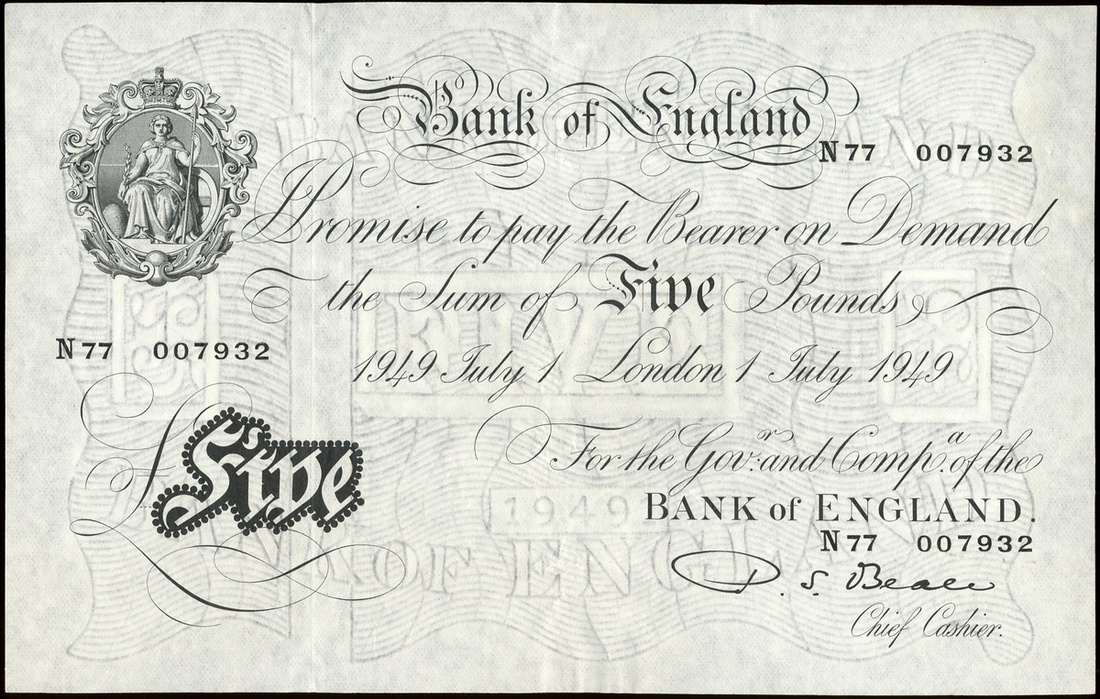 Bank of England
N77 007932
I Promise to pay the Bearer on Demand
the Sum of Five Pounds
1949 July 1 London 1 July 1949
N77 007932
£Five
For the Govr. and Compa. of the
BANK of ENGLAND.
N77 007932
P. S. Beale
Chief Cashier.
FIVE
1949
OF ENGLAND